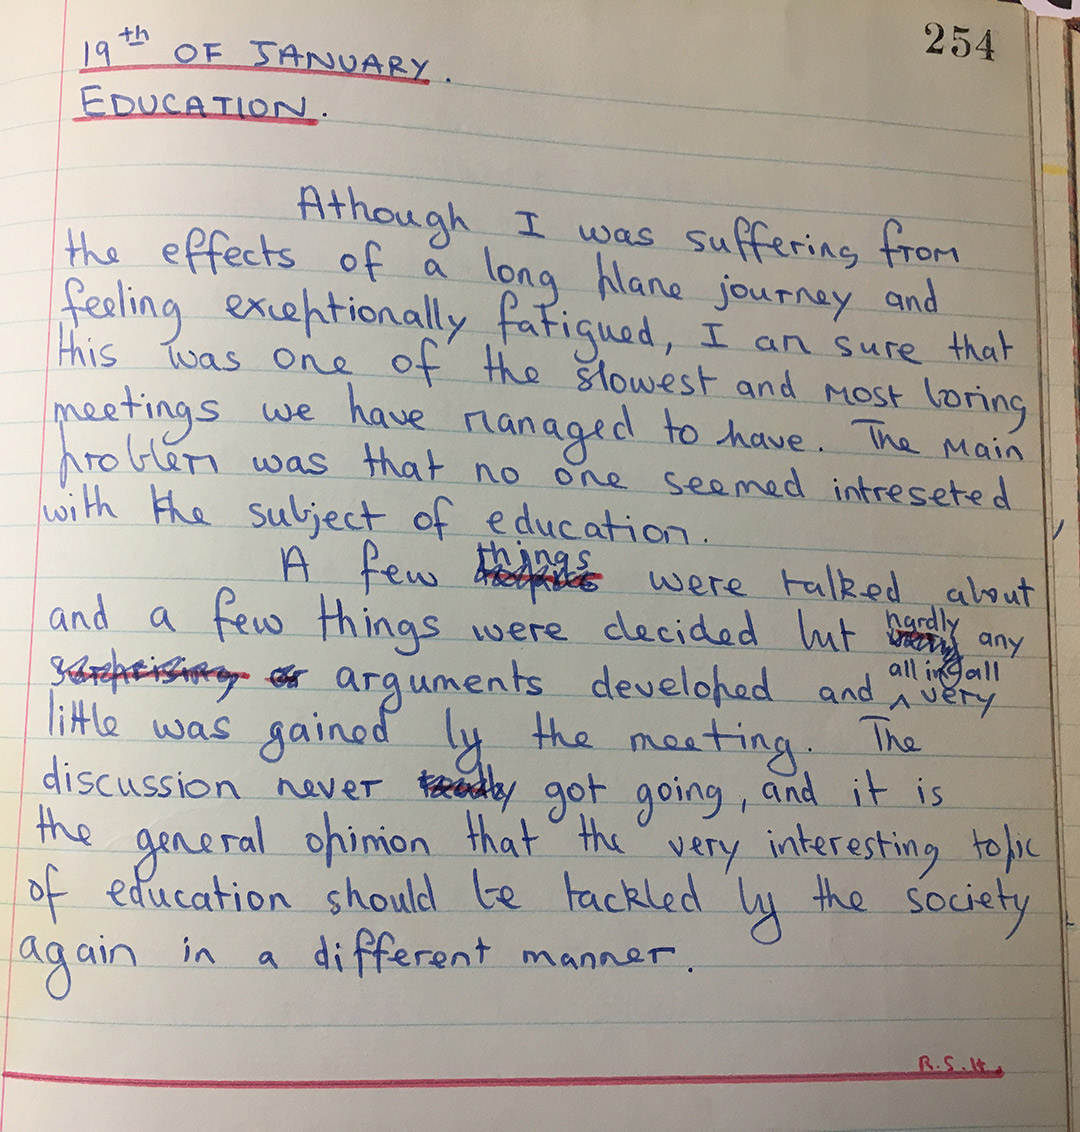 254
19th OF JANUARY.
EDUCATION.
Athough I was suffering from
the effects of a long plane journey and
feeling exceptionally fatigued, I am sure that
this was one of the slowest and most boring
meetings we have managed to have. The main
problem was that no one seemed intreseted
with the subject of education.
A few things were talked about
and a few things were decided but hardly any
surprising or arguments developed and all in all very
little was gained by the meeting. The
discussion never got going, and it is
the general opinion that the very interesting topic
of education should be tackled by the society
again in a different manner.
R.S.H.